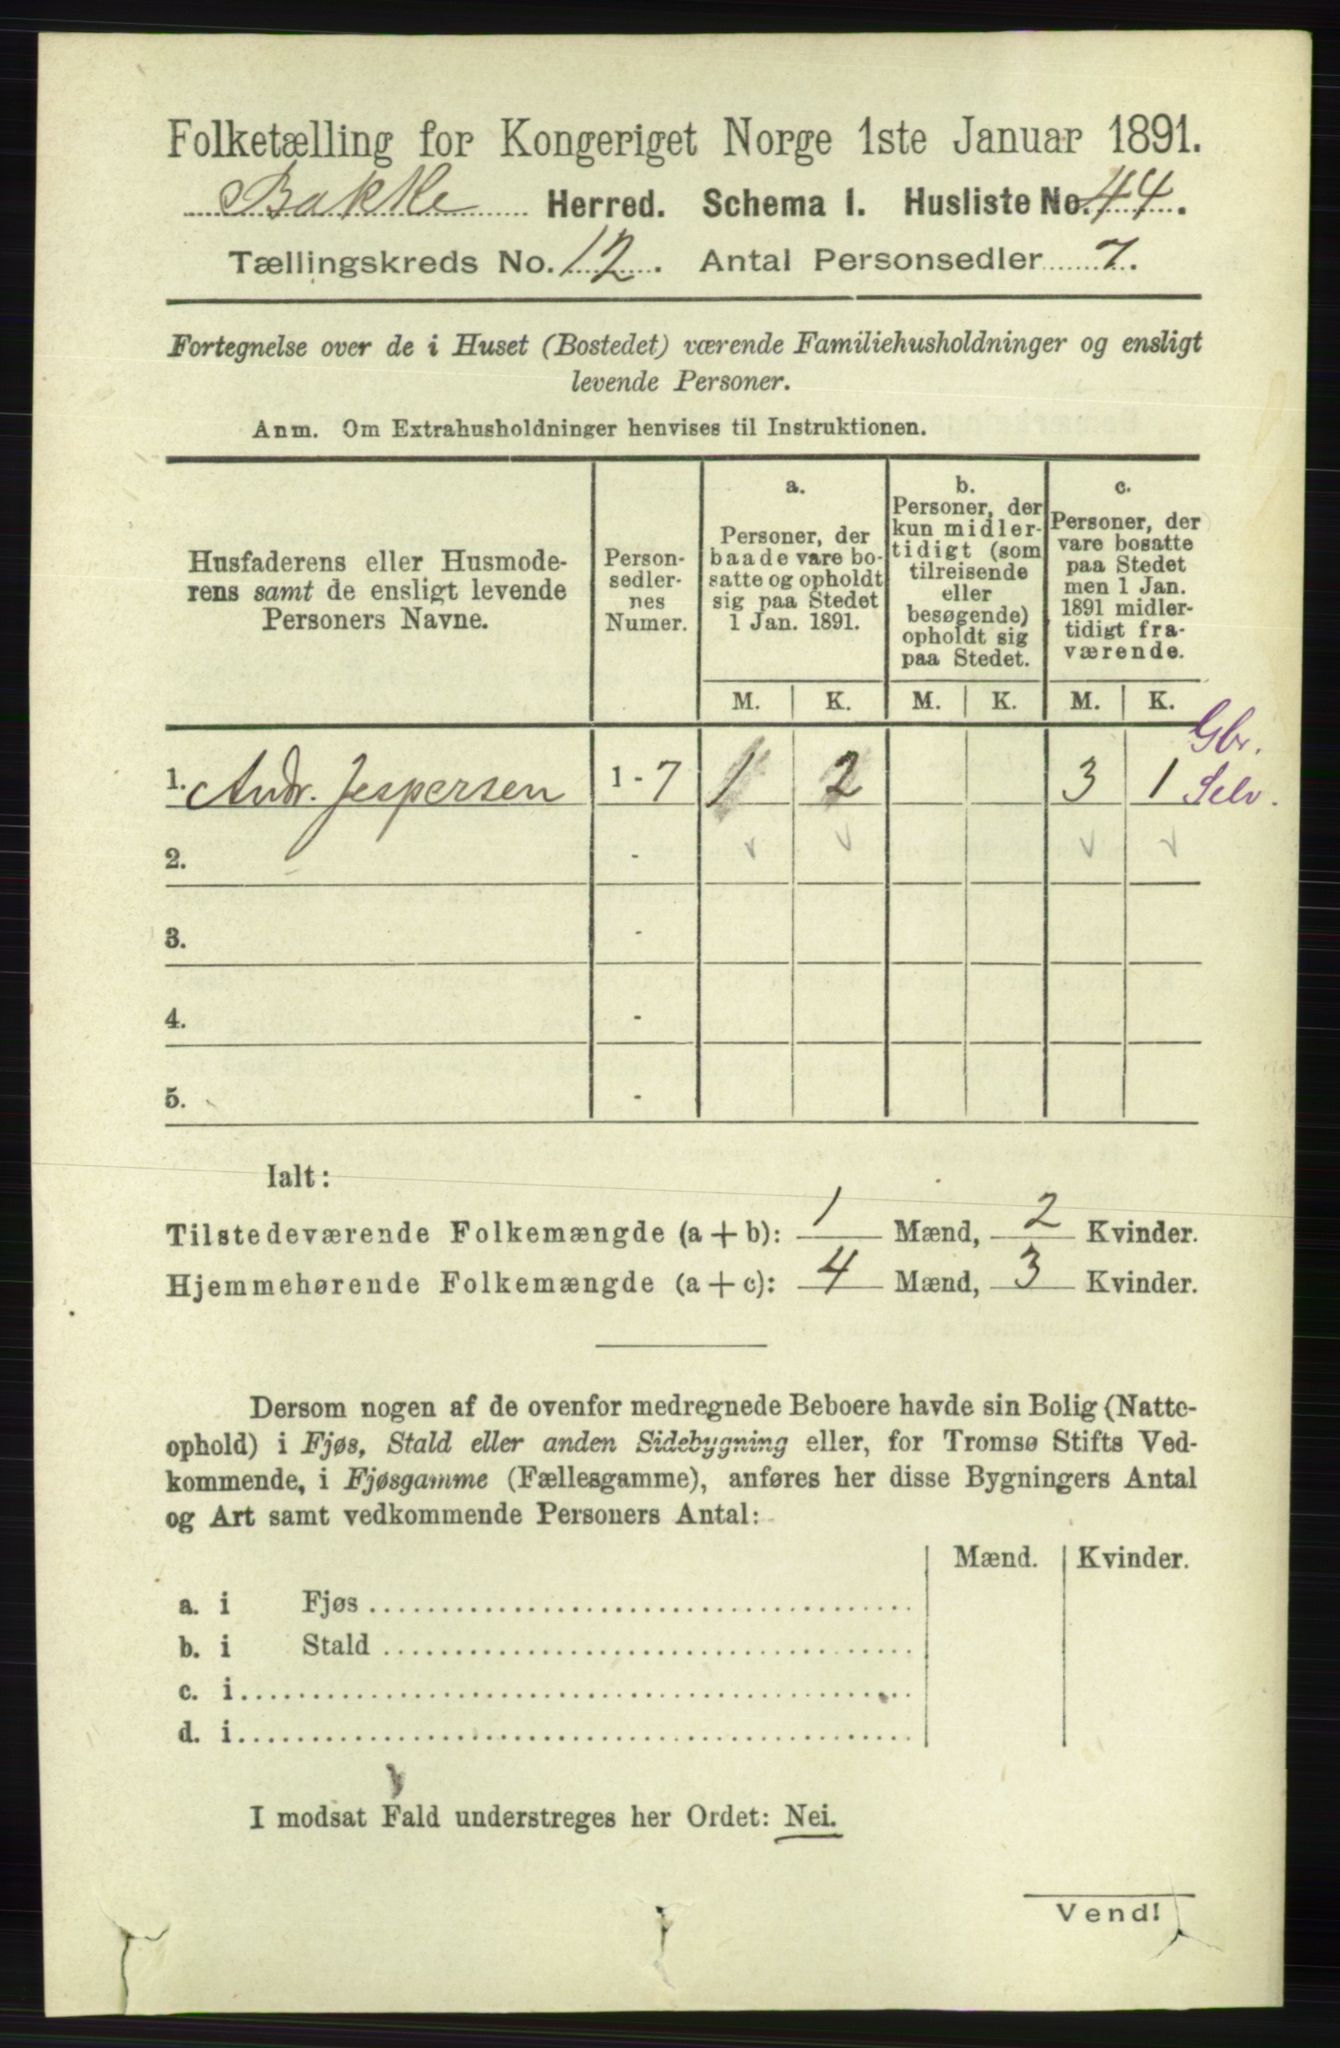 Folketælling for Kongeriget Norge 1ste Januar 1891.
Bakke Herred. Schema 1. Husliste No. 44.
Tællingskreds No. 12. Antal Personsedler 7.
Fortegnelse over de i Huset (Bostedet) værende Familiehusholdninger og ensligt
levende Personer.
Anm. Om Extrahusholdninger henvises til Instruktionen.
Husfaderens eller Husmode-
rens samt de ensligt levende
Personers Navne.
Person-
sedler-
nes
Numer.
a.
Personer, der
baade vare bo-
satte og opholdt
sig paa Stedet
1 Jan. 1891.
b.
Personer, der
kun midler-
tidigt (som
tilreisende
eller
besøgende)
opholdt sig
paa Stedet.
c.
Personer, der
vare bosatte
paa Stedet
men 1 Jan.
1891 midler-
tidigt fra-
værende.
M. K. M. K. M. K.
Gbr.
1. Andr. Jespersen 1 - 7 1 2 3 1 Selv.
2. -
3. -
4. -
5. -
Ialt:
Tilstedeværende Folkemængde (a + b): 1 Mænd, 2 Kvinder.
Hjemmehørende Folkemængde (a + c): 4 Mænd, 3 Kvinder.
Dersom nogen af de ovenfor medregnede Beboere havde sin Bolig (Natte-
ophold) i Fjøs, Stald eller anden Sidebygning eller, for Tromsø Stifts Ved-
kommende, i Fjøsgamme (Fællesgamme), anføres her disse Bygningers Antal
og Art samt vedkommende Personers Antal:
Mænd. Kvinder.
a. i Fjøs
b. i Stald
c. i
d. i
I modsat Fald understreges her Ordet: Nei.
Vend!